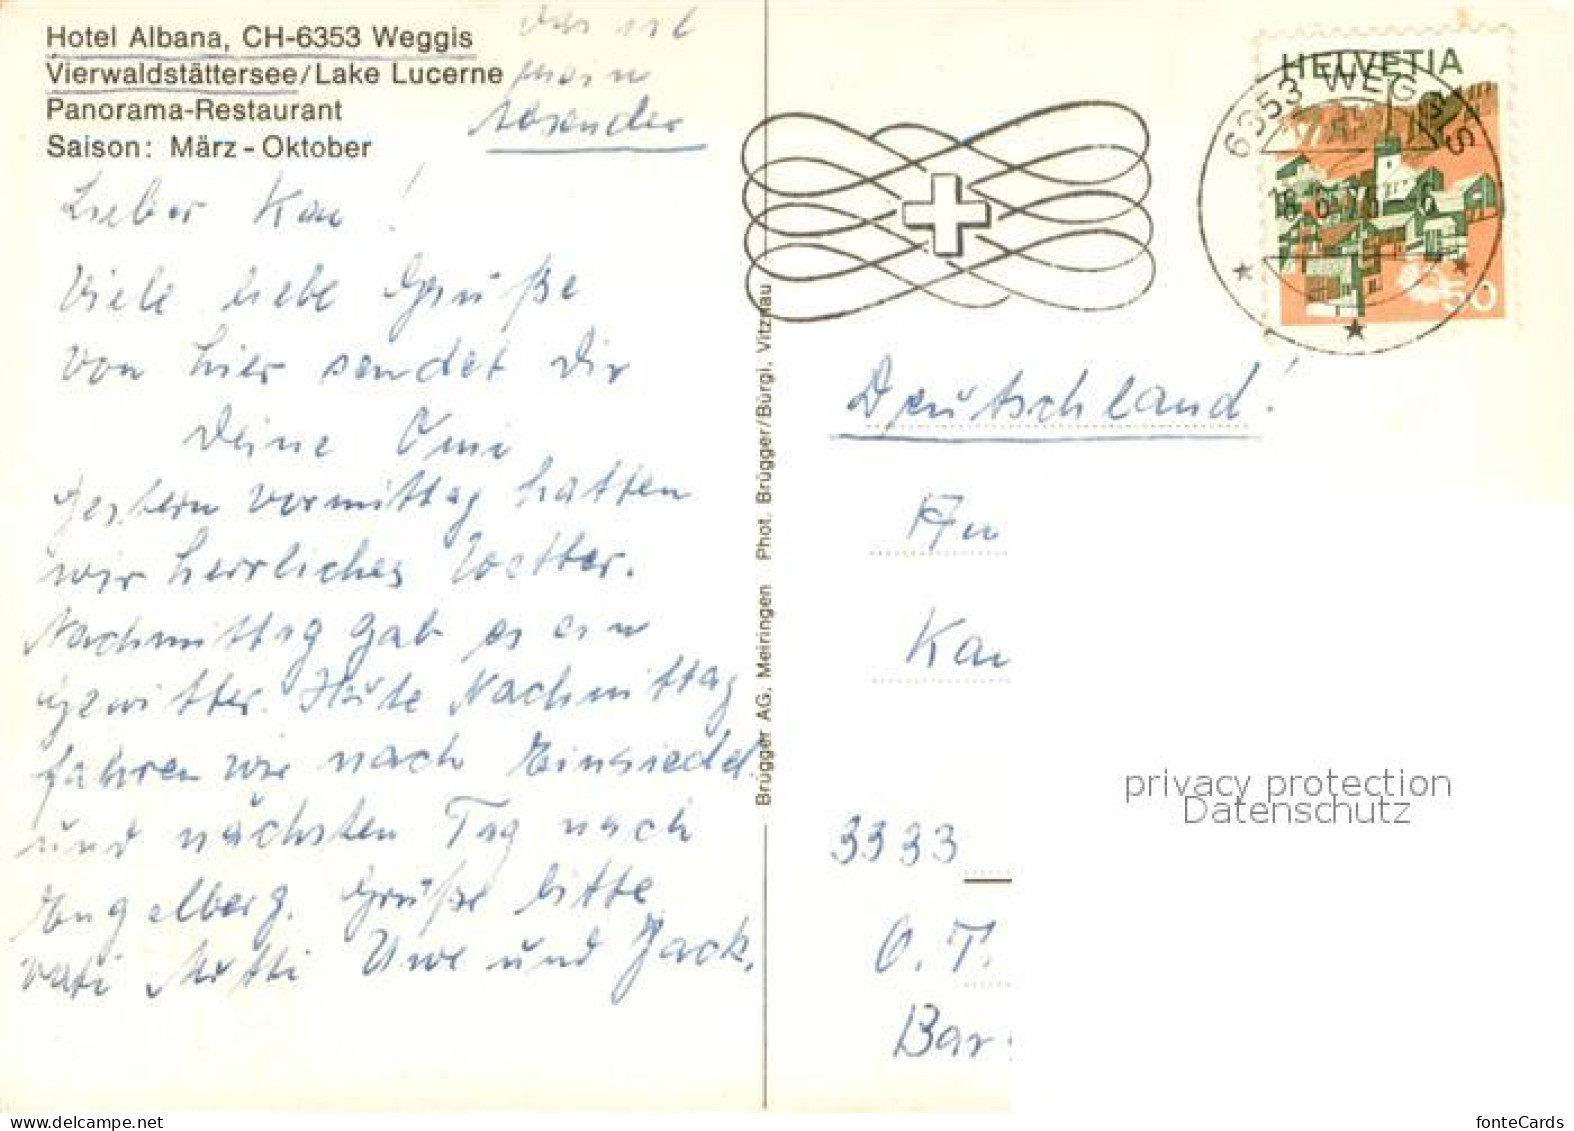 Hotel Albana, CH-6353 Weggis
Vierwaldstättersee/Lake Lucerne
Panorama-Restaurant
Saison: März - Oktober
Das ist
mein
Absender
Lieber Kai!
Viele liebe Grüße
von hier sendet Dir
Deine Omi
Gestern vormittag hatten
wir herrliches Wetter.
Nachmittag gab es ein
Gewitter. Heute Nachmittag
fahren wir nach Einsiedel.
und nächsten Tag nach
Engelberg. Grüße bitte
Vati Mutti Uwe und Jack.
Brügger AG, Meiringen Phot. Brügger/Bürgi, Vitznau
HELVETIA
50
6353 WEGGIS
Deutschland!
An
Kai
3333
O. T.
Bar
privacy protection
Datenschutz
fonteCards